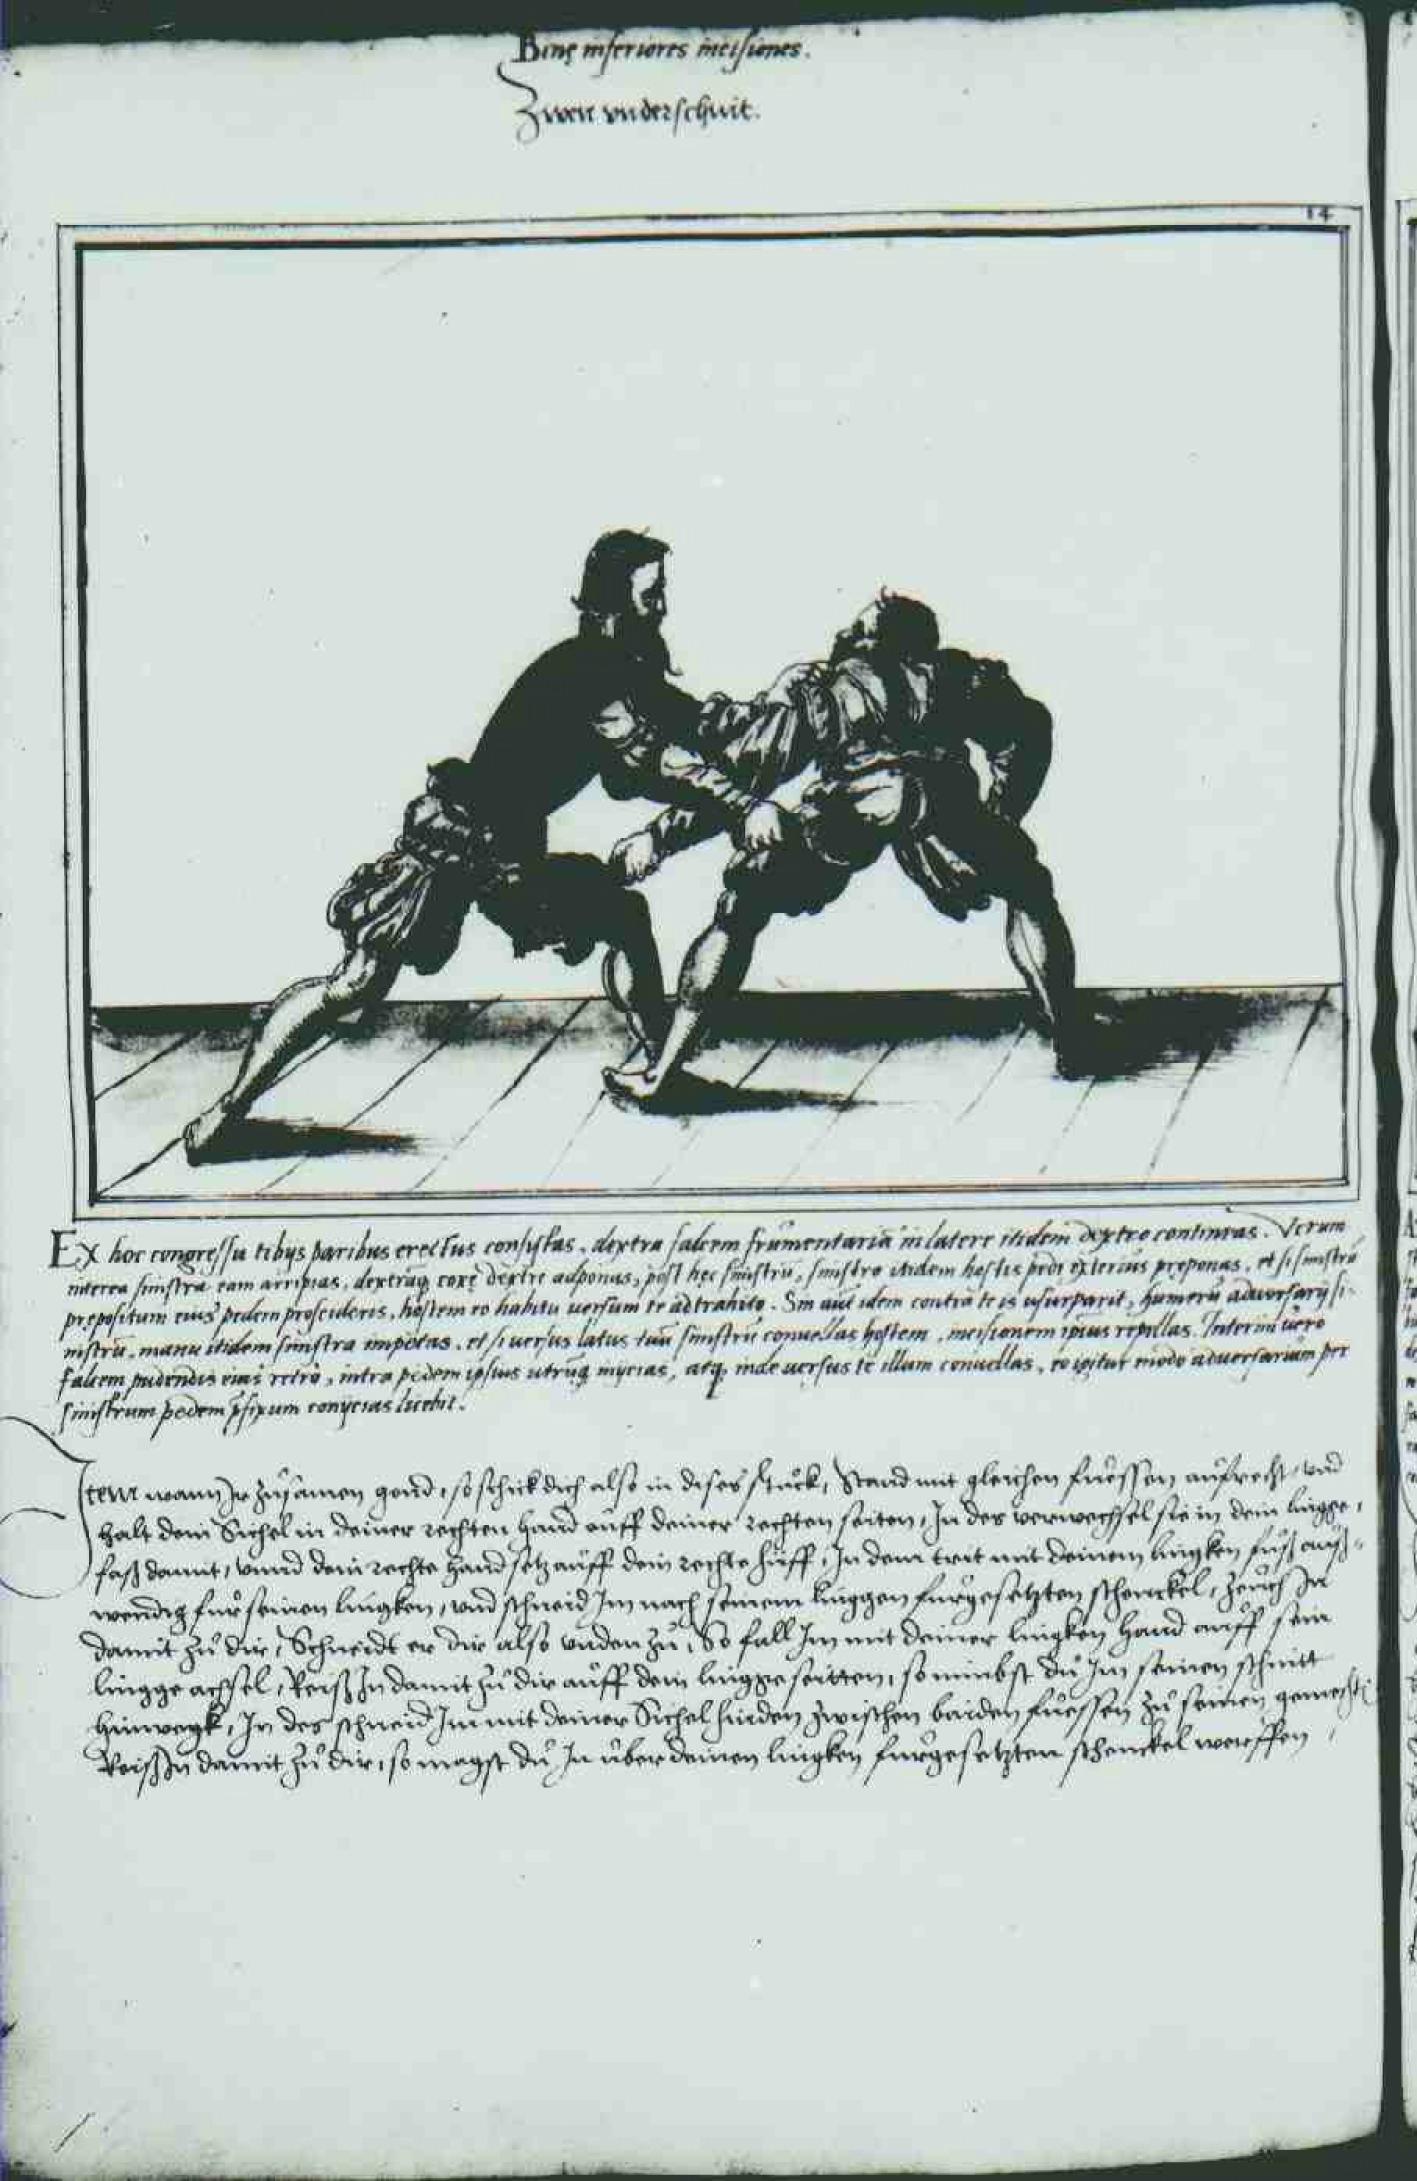 Binę inferiores incisiones.
Zwen vnderschnit.
14
Ex hoc congressu tibijs paribus erectus consistas, dextra falcem frumentariã in latere itidem dextro contineas. Verum
interea sinistra eam arripias, dextramq; coxę dextrę adponas, post hęc sinistrũ, sinistro itidem hostis pedi exterius pręponas, et si sinistrũ
prępositum eius pedem proscideris, hostem eo habitu versum te adtrahito. Sin aũt idem contra te is usurparit, humerũ adversarij si-
nistrũ, manu itidem sinistra impetas, et si versus latus tuũ sinistrũ convellas hostem, incisionem ipsius repellas. Interim vero
falcem pudendis eius retro, intra pedem ipsius utrunq; inijcias, atq; inde versus te illum convellas, eo igitur modo adversarium per
sinistrum pedem pręfixum conijcias licebit.
Item wann Ir zůsamen gond, so schick dich also in dises stuck, Stand mit gleichen fůessen aufrecht, vnd
halt dein Sichel in deiner rechten hand auff deiner rechten seiten, In des verwechsel sie in dein lingge,
faß damit, vnnd dein rechte hand setz auff dein rechte huff, In dem trit mit deinem lingken fůß auß-
wendig fur seinen lingken, vnd schneid Im nach seinem linggen furgesetzten schenckel, zeuch In
damit zů dir, Schneidt er dir also vnden zů, So fall Im mit deiner lingken hand auff sein
lingge achsel, Reiß In damit zů dir auff dein lingge seitten, so nimbst dů Im seinen schnitt
hinwegk, In des schneid Im mit deiner Sichel hinden zwischen baiden fůessen zů seinen gemecht,
Reiß In damit zů dir, so magst dů In uber deinen lingken furgesetzten schenckel werffen,